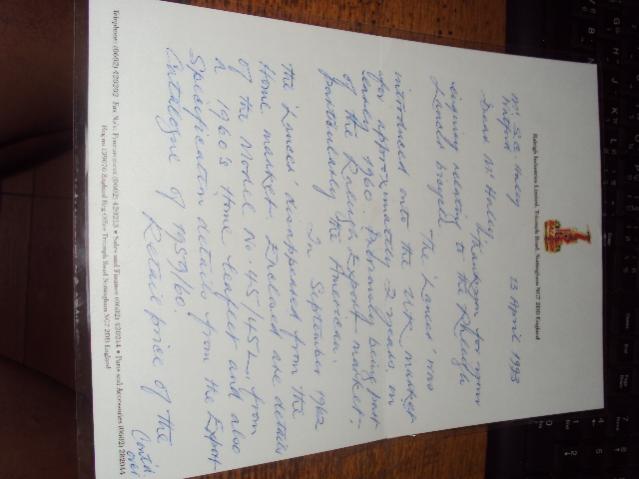 Raleigh Industries Limited, Triumph Road, Nottingham NG7 2DD England
13 April 1993
Mr
Dear Mr
Thankyou for your
enquiry relating to the Raleigh
Lancer bicycle
The 'Lancer' was
introduced onto the UK market
for approximately 2 years, in
early 1960. Primarily being part
of the Raleigh Export market -
particularly the American.
In September 1962
the 'Lancer' disappeared from the
Home market. Enclosed are details
of the Model No 45/45L, from
a 1960's Home leaflet and also
Specification details from the Export
Catalogue of 1959/60.
Retail price of the
Cont'd
over
Telephone: (0602) 420202 Fax No's: Procurement (0602) 420213 • Sales and Finance (0602) 420214 • Parts and Accessories (0602) 282044
England Reg Office Triumph Road Nottingham NG7 2DD England